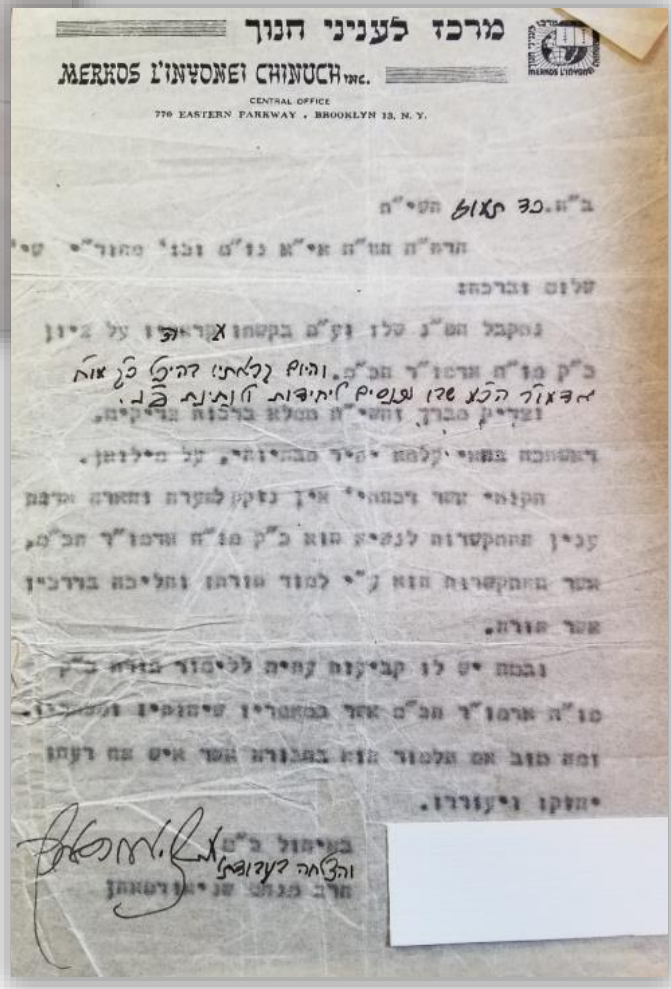 מרכז לעניני חנוך
MERKOS L'INYONEI CHINUCH INC.
CENTRAL OFFICE
770 EASTERN PARKWAY . BROOKLYN 13, N. Y.
MERKOS L'INYONEI CHINUCH
ב"ה. כד תמוז השי"ת
הרה"ח הוו"ח אי"א נו"מ וכו' מהור"י שי'
שלום וברכה:
נתקבל המ"נ שלו וע"פ בקשתו קראתיו על ציון
כ"ק מו"ח אדמו"ר הכ"מ. והיום קראתיו בהיכל כ"ק
שבו נכנסים ליחידות ולנתינת פ"נ.
וצדיק מברך והשי"ת ממלא ברכות צדיקים,
דאשתכח בהאי עלמא יתיר מבחיוהי, על מילואן.
תקותי אשר דכוותי' אין נזקק להערה והארה אודות
ענין ההתקשרות לנשיא הוא כ"ק מו"ח אדמו"ר הכ"מ,
אשר ההתקשרות הוא ע"י למוד תורתו והליכה בדרכיו
אשר הורה.
ובטח יש לו קביעות עתים ללימוד תורת כ"ק
מו"ח אדמו"ר הכ"מ אשר במאמריו שיחותיו ומכתביו.
ומה טוב אם הלמוד הוא בחבורא אשר איש את רעהו
יחזקו ויעוררו.
באיחול כ"ט
והצלחה בעבודתו
הרב מנחם שניאורסאהן